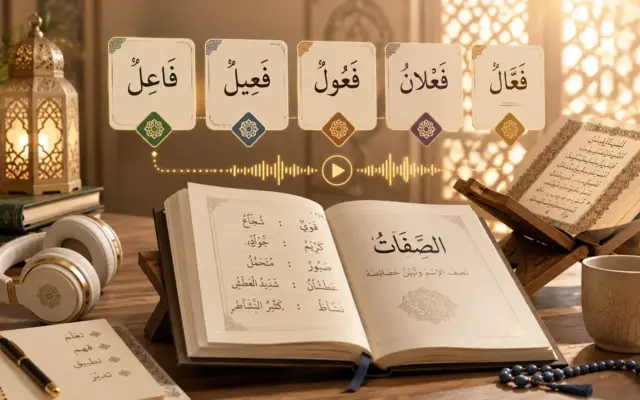 فَعَّالٌ فَعْلَانُ فَعُولٌ فَعِيلٌ فَاعِلٌ
الصِّفَاتُ
تصف الاسم وتبين خصائصه
قَوِيٌّ : شُجَاعٌ
كَرِيمٌ : جَوَادٌ
صَبُورٌ : مُتَحَمِّلٌ
عَطْشَانُ : شَدِيدُ الْعَطَشِ
نَشَاطٌ : كَثِيرُ النَّشَاطِ
تعلّم
فهم
تطبيق
تدبّر